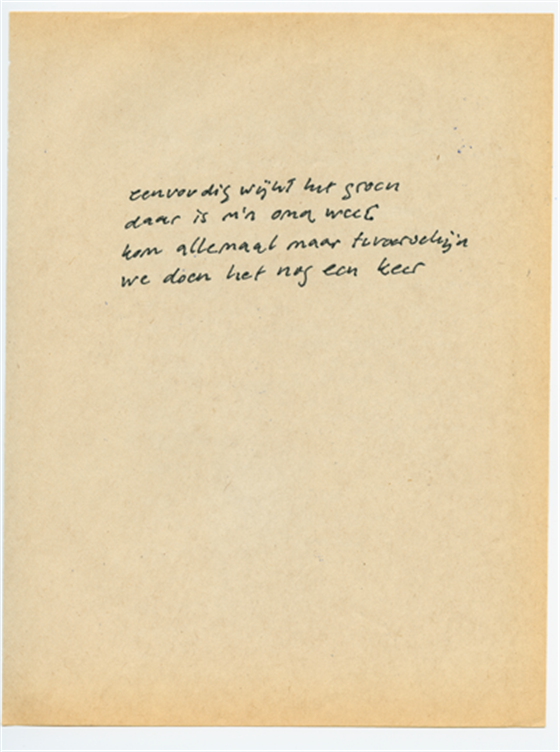 eenvoudig wijkt het groen
daar is m'n oma weer
kom allemaal maar tevoorschijn
we doen het nog een keer